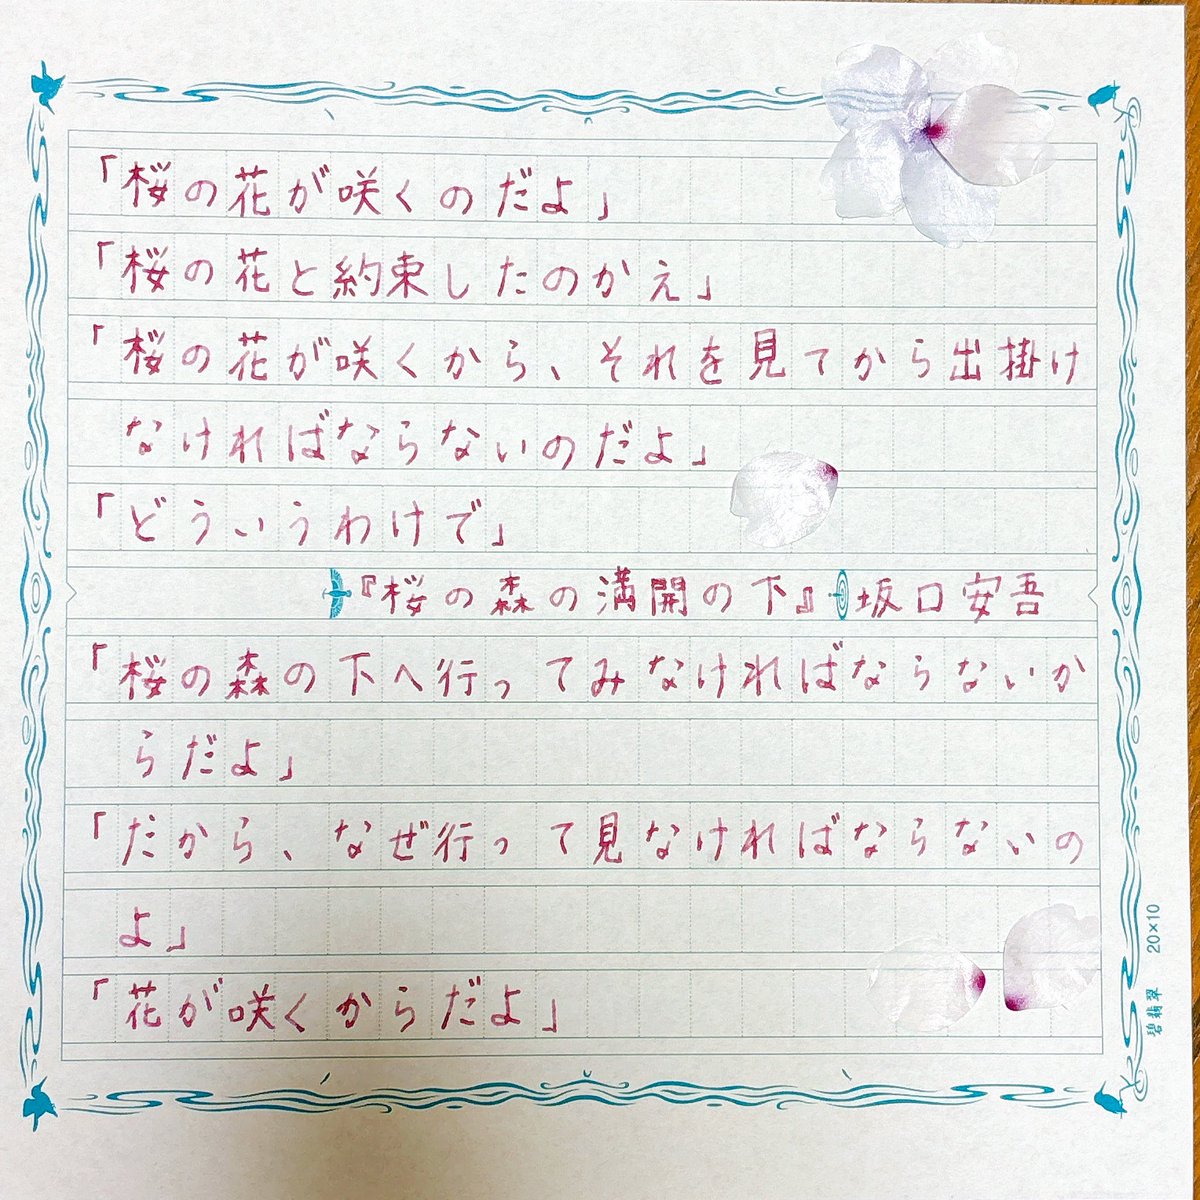 「桜の花が咲くのだよ」
「桜の花と約束したのかえ」
「桜の花が咲くから、それを見てから出掛け
なければならないのだよ」
「どういうわけで」
『桜の森の満開の下』坂口安吾
「桜の森の下へ行ってみなければならないか
らだよ」
「だから、なぜ行って見なければならないの
よ」
「花が咲くからだよ」
碧翡翠 20×10